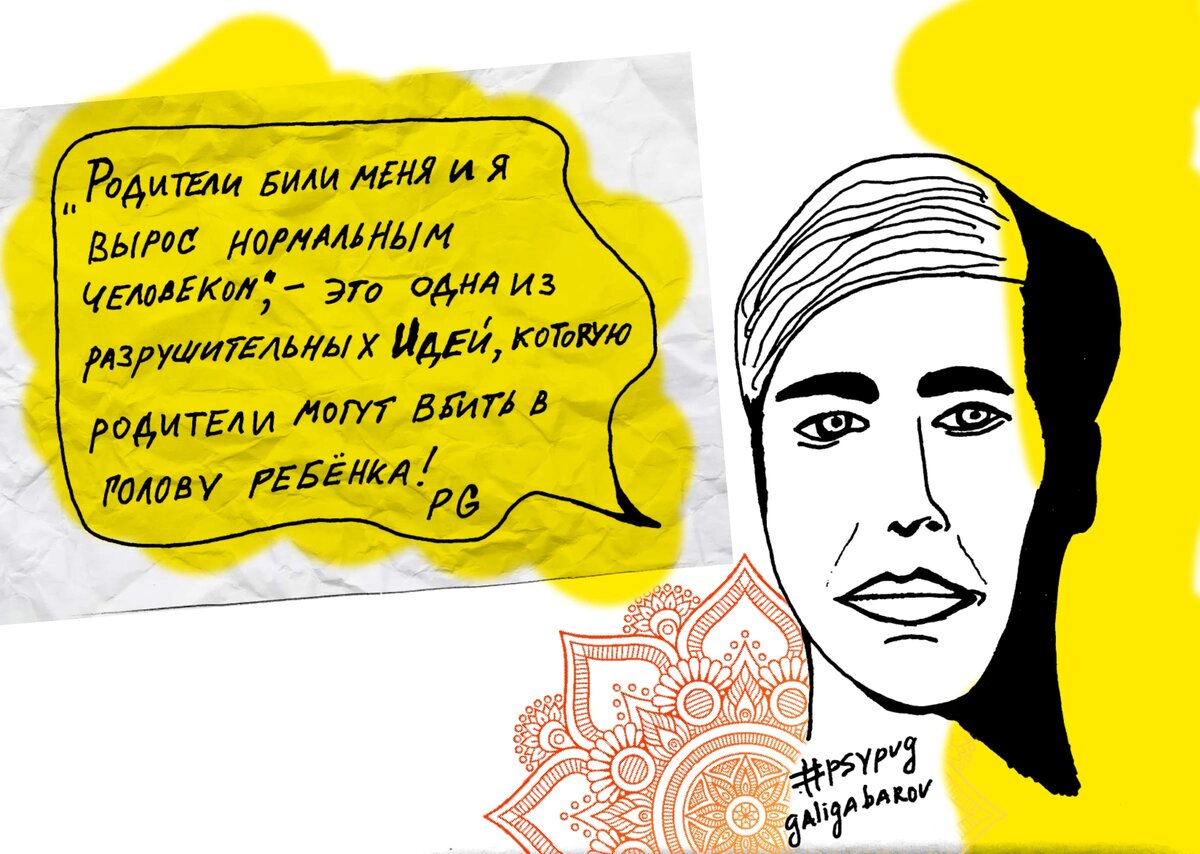 „Родители били меня и я
вырос нормальным
человеком", – это одна из
разрушительных Идей, которую
родители могут вбить в
голову ребёнка!
PG
#psypvg
galigabarov